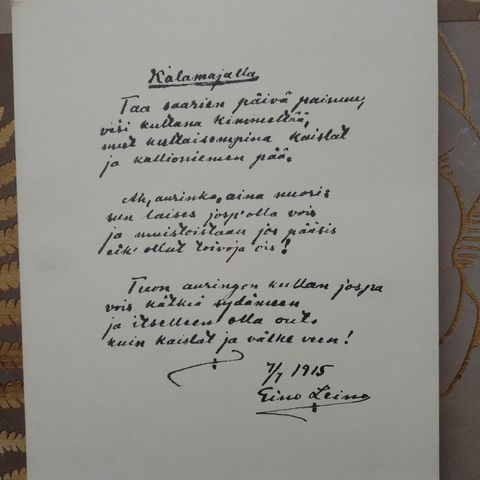 Kalamajalla
Taa saarien päivä painuu,
vesi kultana kimmeltää,
mut kultaisempina kaislat
ja kallioniemen pää.
Ah, aurinko, aina nuoris
sun laises josp' olla vois
ja muistoistaan jos pääsis
eik' ollut toivoja ois!
Tuon auringon kullan jospa
vois kätkeä sydämeen
ja itselleen olla outo
kuin kaislat ja välke veen!
7/7 1915
Eino Leino